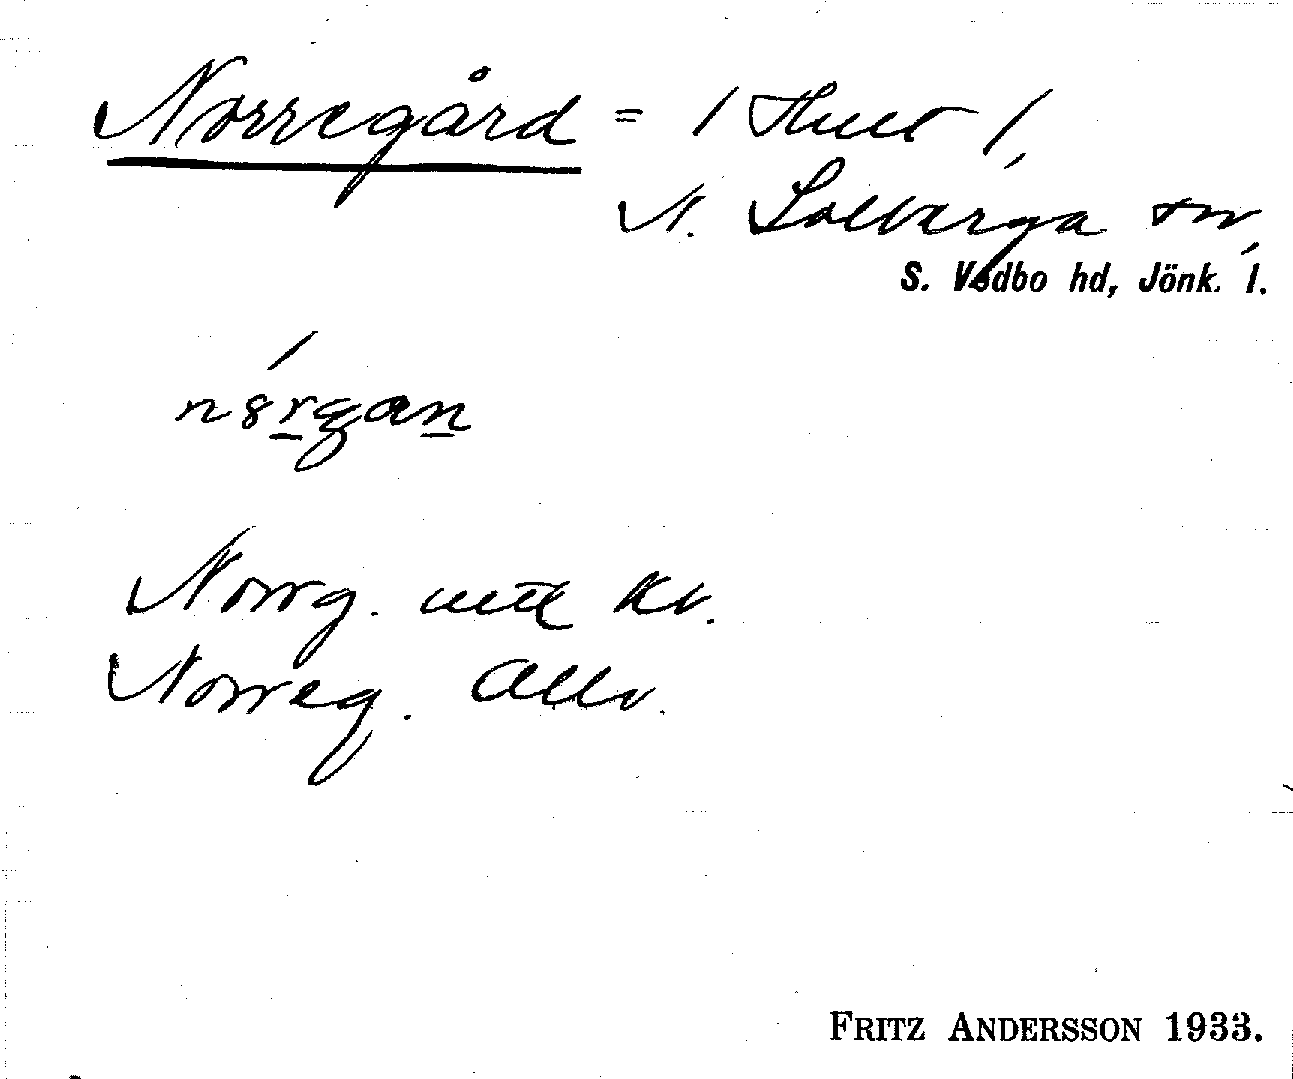 Norregård = / Hult /,
N. Solberga sn,
S. Vedbo hd, Jönk. l.
Norrg. utt Kv.
Norreg. Allv.
FRITZ ANDERSSON 1933.